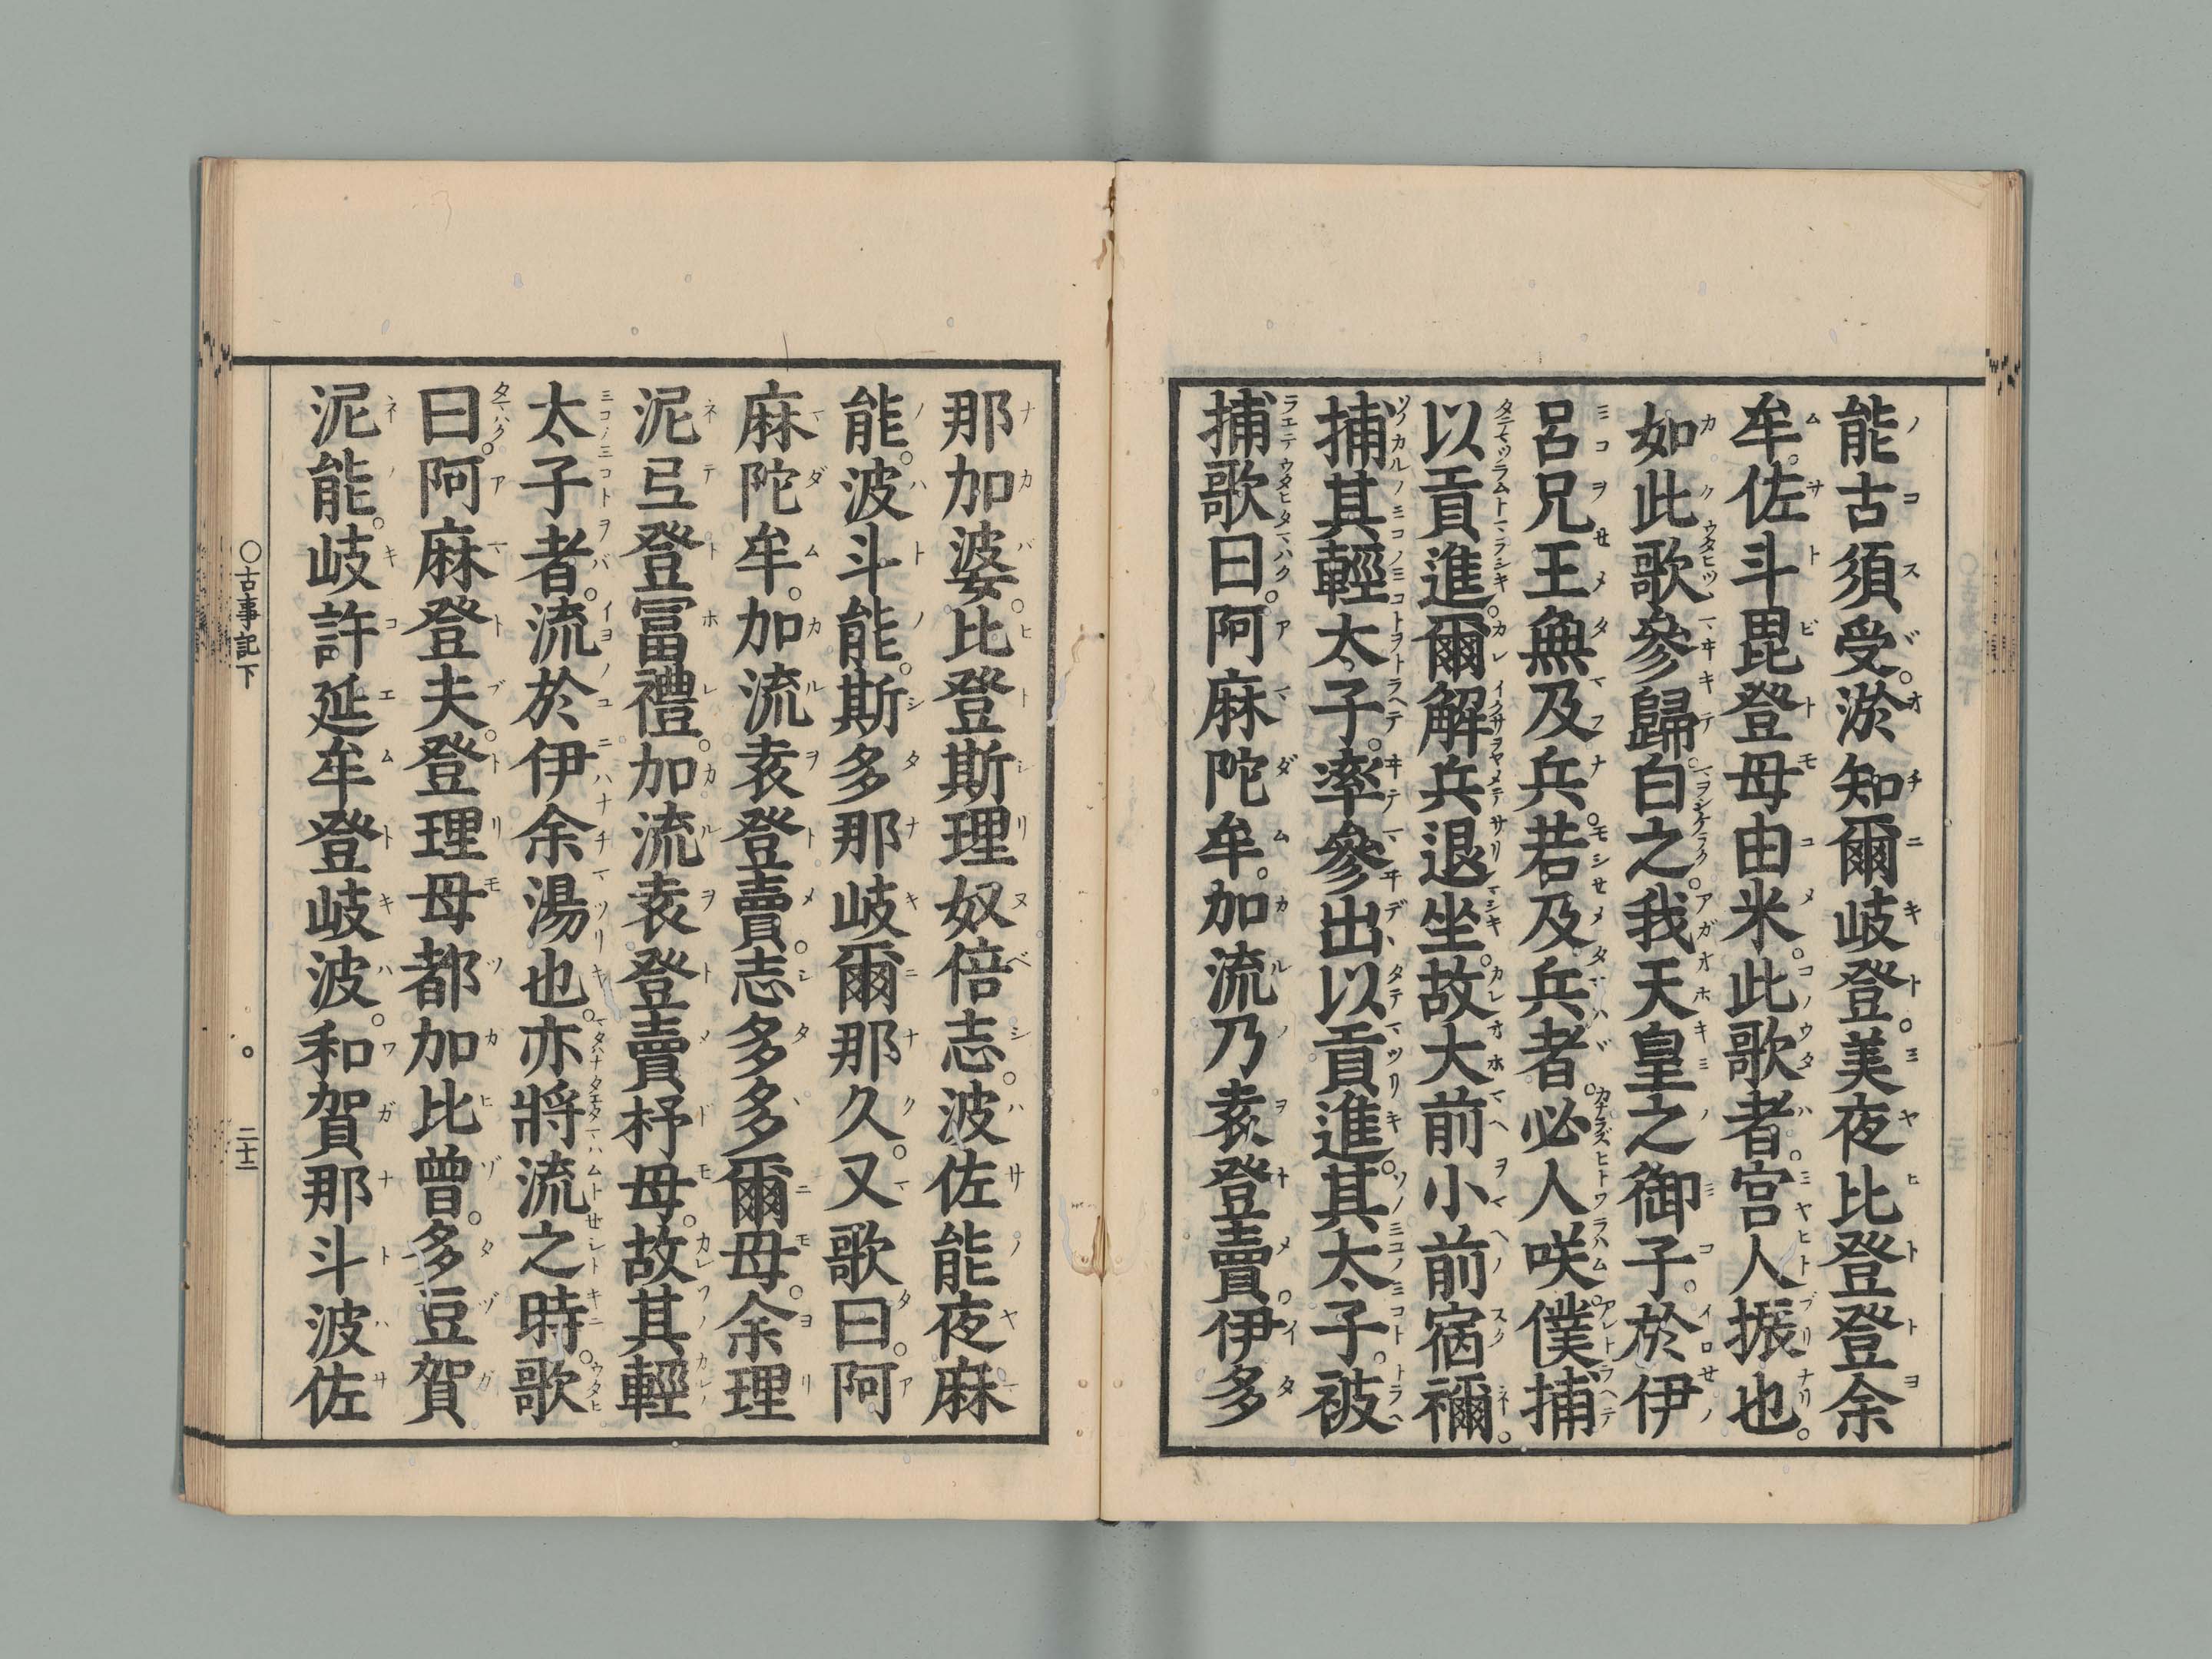 能古須受。淤知爾岐登。美夜比登登余
牟。佐斗毘登母由米。此歌者。宮人振也。
如此歌參歸。白之。我天皇之御子。於伊
呂兄王無及兵。若及兵者。必人咲。僕捕
以貢進。爾解兵退坐。故大前小前宿禰。
捕其輕太子。率參出以貢進。其太子。被
捕歌曰。阿麻陀牟。加流乃袁登賣。伊多
那加婆。比登斯理奴倍志。波佐能夜麻
能。波斗能。斯多那岐爾那久。又歌曰。阿
麻陀牟。加流袁登賣。志多多爾母。余理
泥弖登富禮。加流袁登賣杼母。故其輕
太子者。流於伊余湯也。亦將流之時。歌
曰。阿麻登夫。登理母都加比曾。多豆賀
泥能。岐許延牟登岐波。和賀那斗波佐
○古事記下 二十二